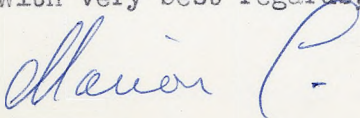 with very best regards,
Marion C.